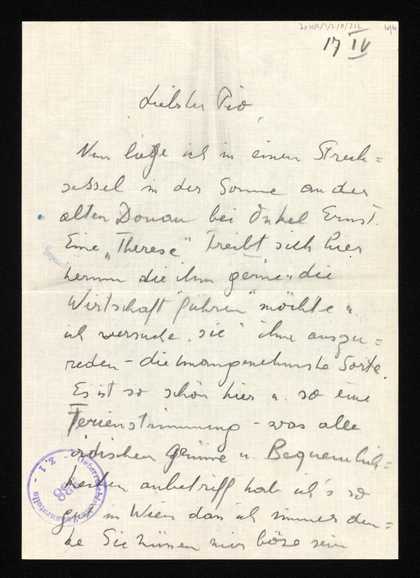 17 IV
Liebster Pio,
Nun liege ich in einem Streck=
sessel in der Sonne an der
alten Donau bei Onkel Ernst.
Eine „Therese" treibt sich hier
herum die ihm gerne „die
Wirtschaft führen" möchte u.
ich versuche „sie" ihm auszu=
reden – die unangenehmste Sorte.
Es ist so schön hier u. so eine
Ferienstimmung – was alle
irdischen Genüsse u. Bequemlich=
keiten anbetrifft hab ich's so
gut in Wien dass ich immer den=
ke Sie müssen mir böse sein